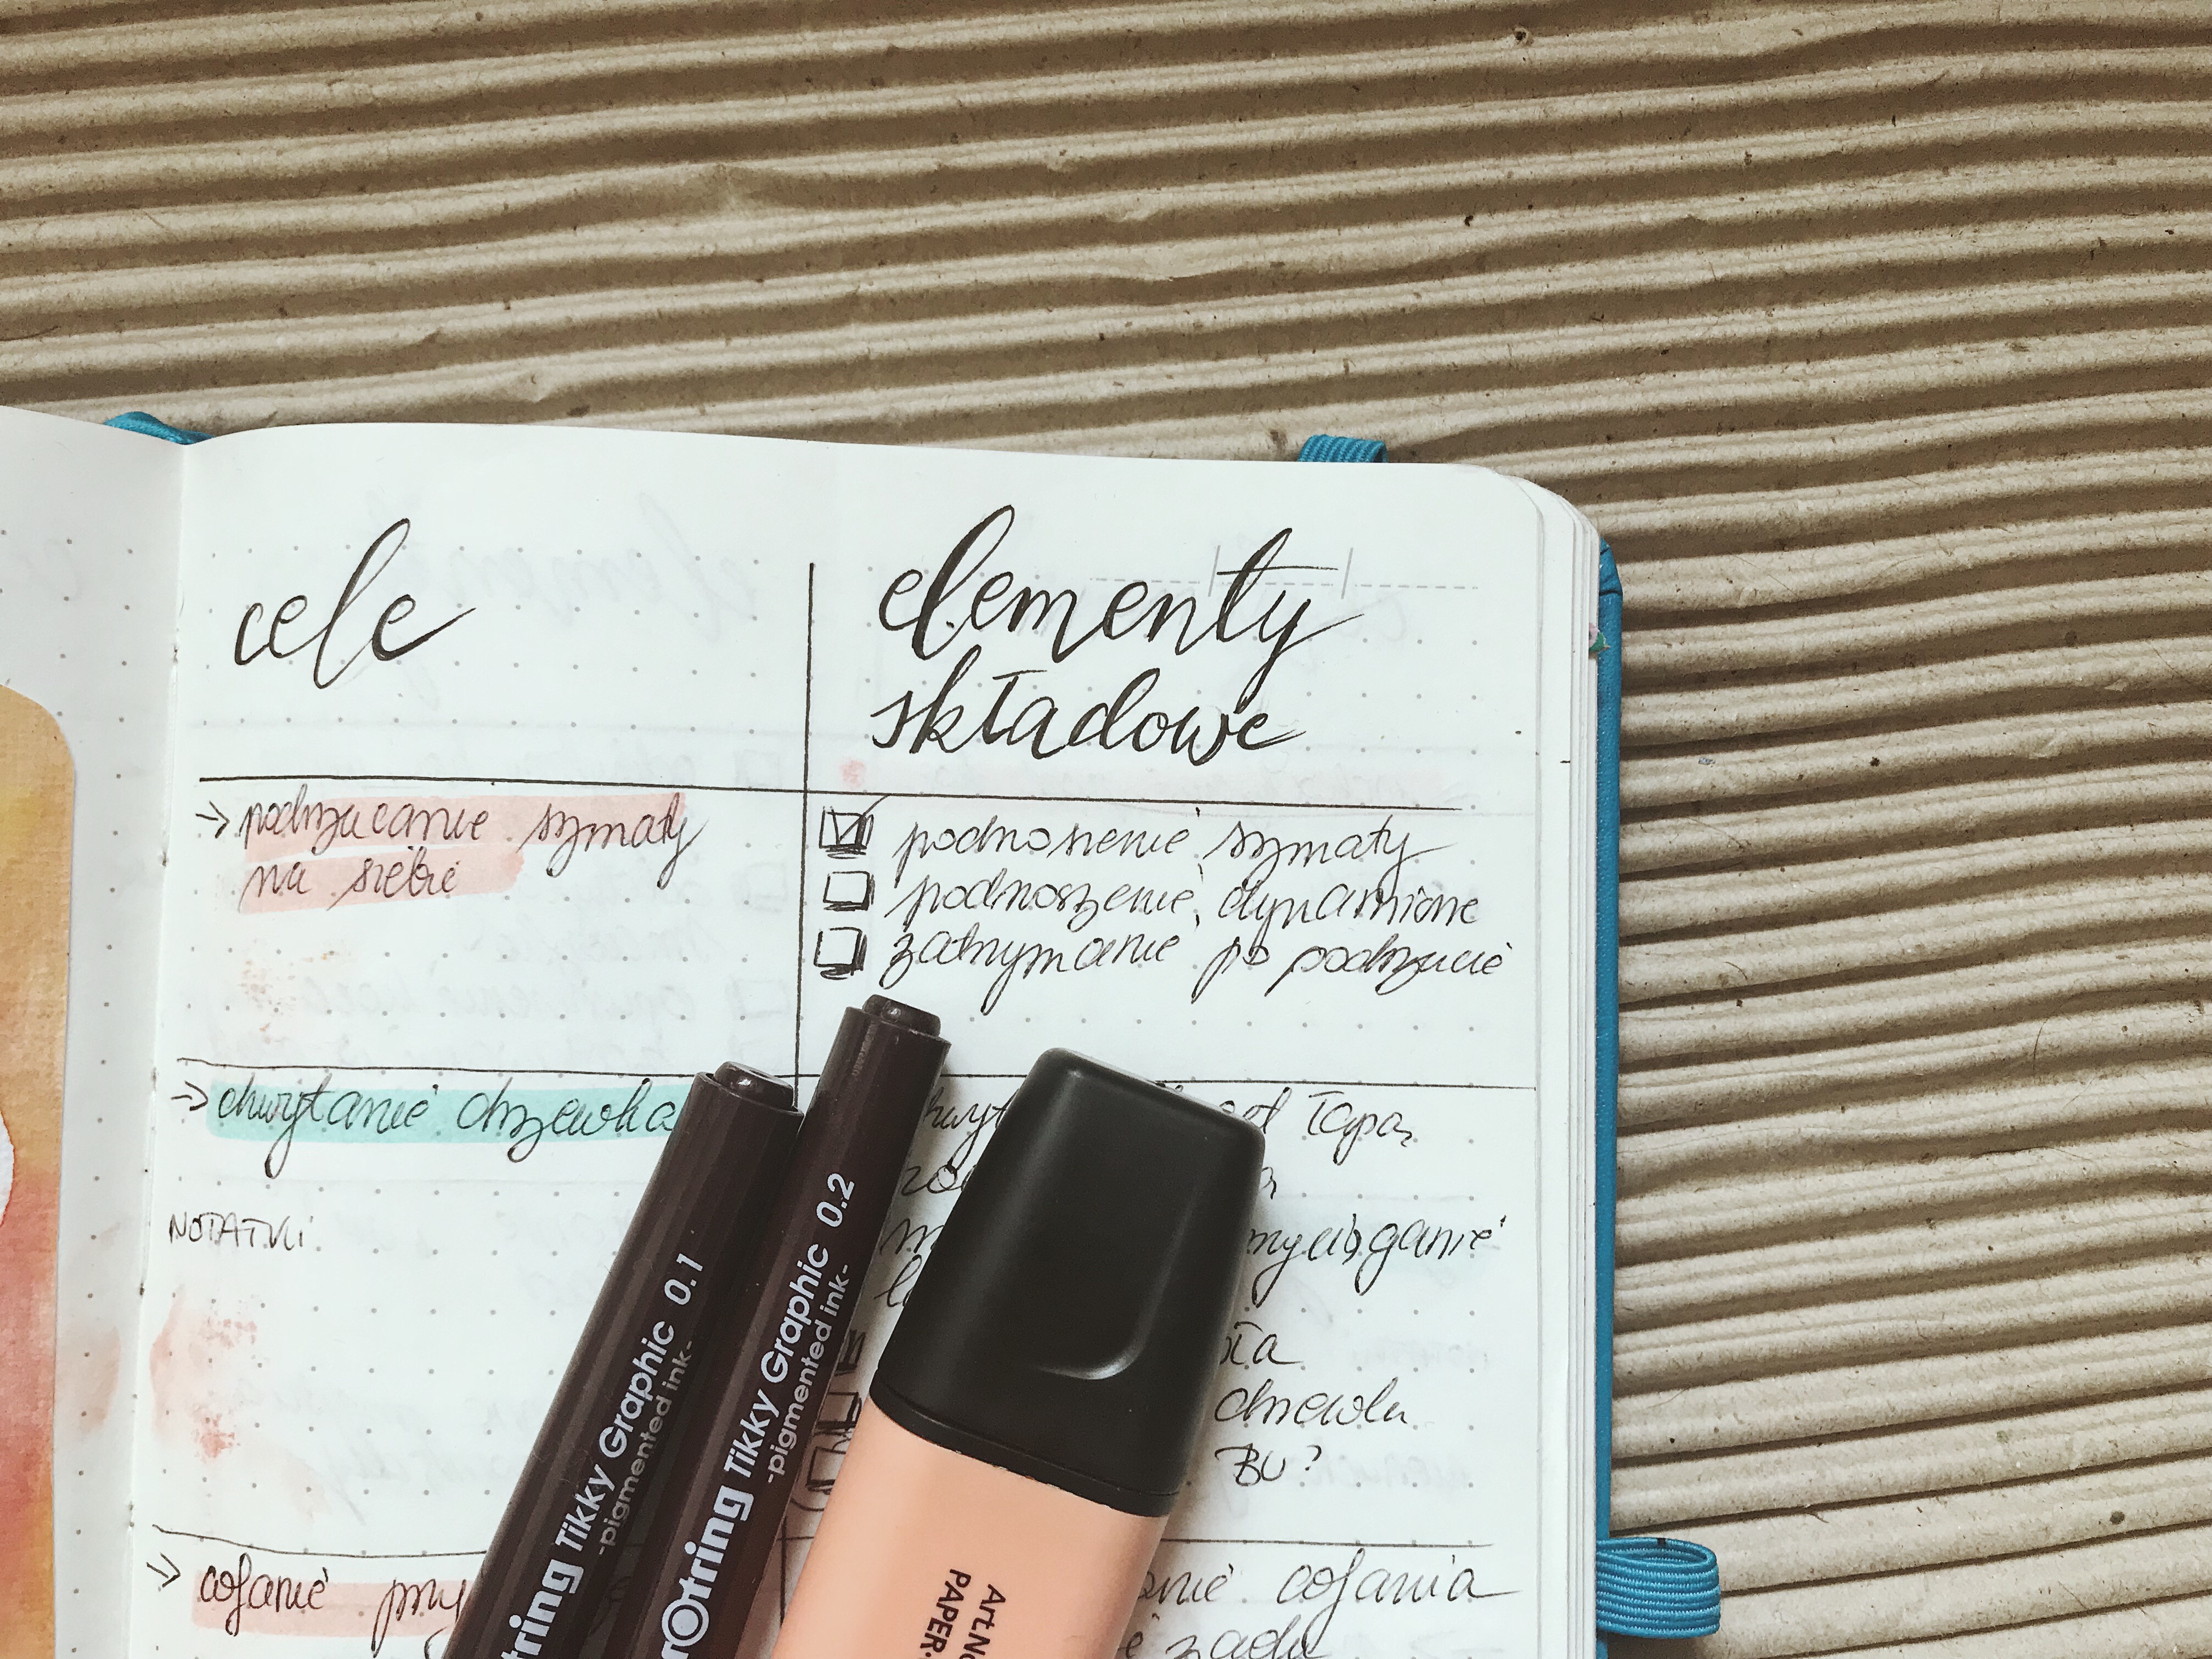 cele
elementy
składowe
→ podrzucanie szmaty
na siebie
podnoszenie szmaty
podnoszenie dynamiczne
zatrzymanie po podrzucie
→ chwytanie drzewka
łapą
NOTATKI
drzewka
BU?
→ cofanie
cofania
zadu
tring Tikky Graphic 0.1
-pigmented ink-
rotring Tikky Graphic 0.2
-pigmented ink-
PAPER